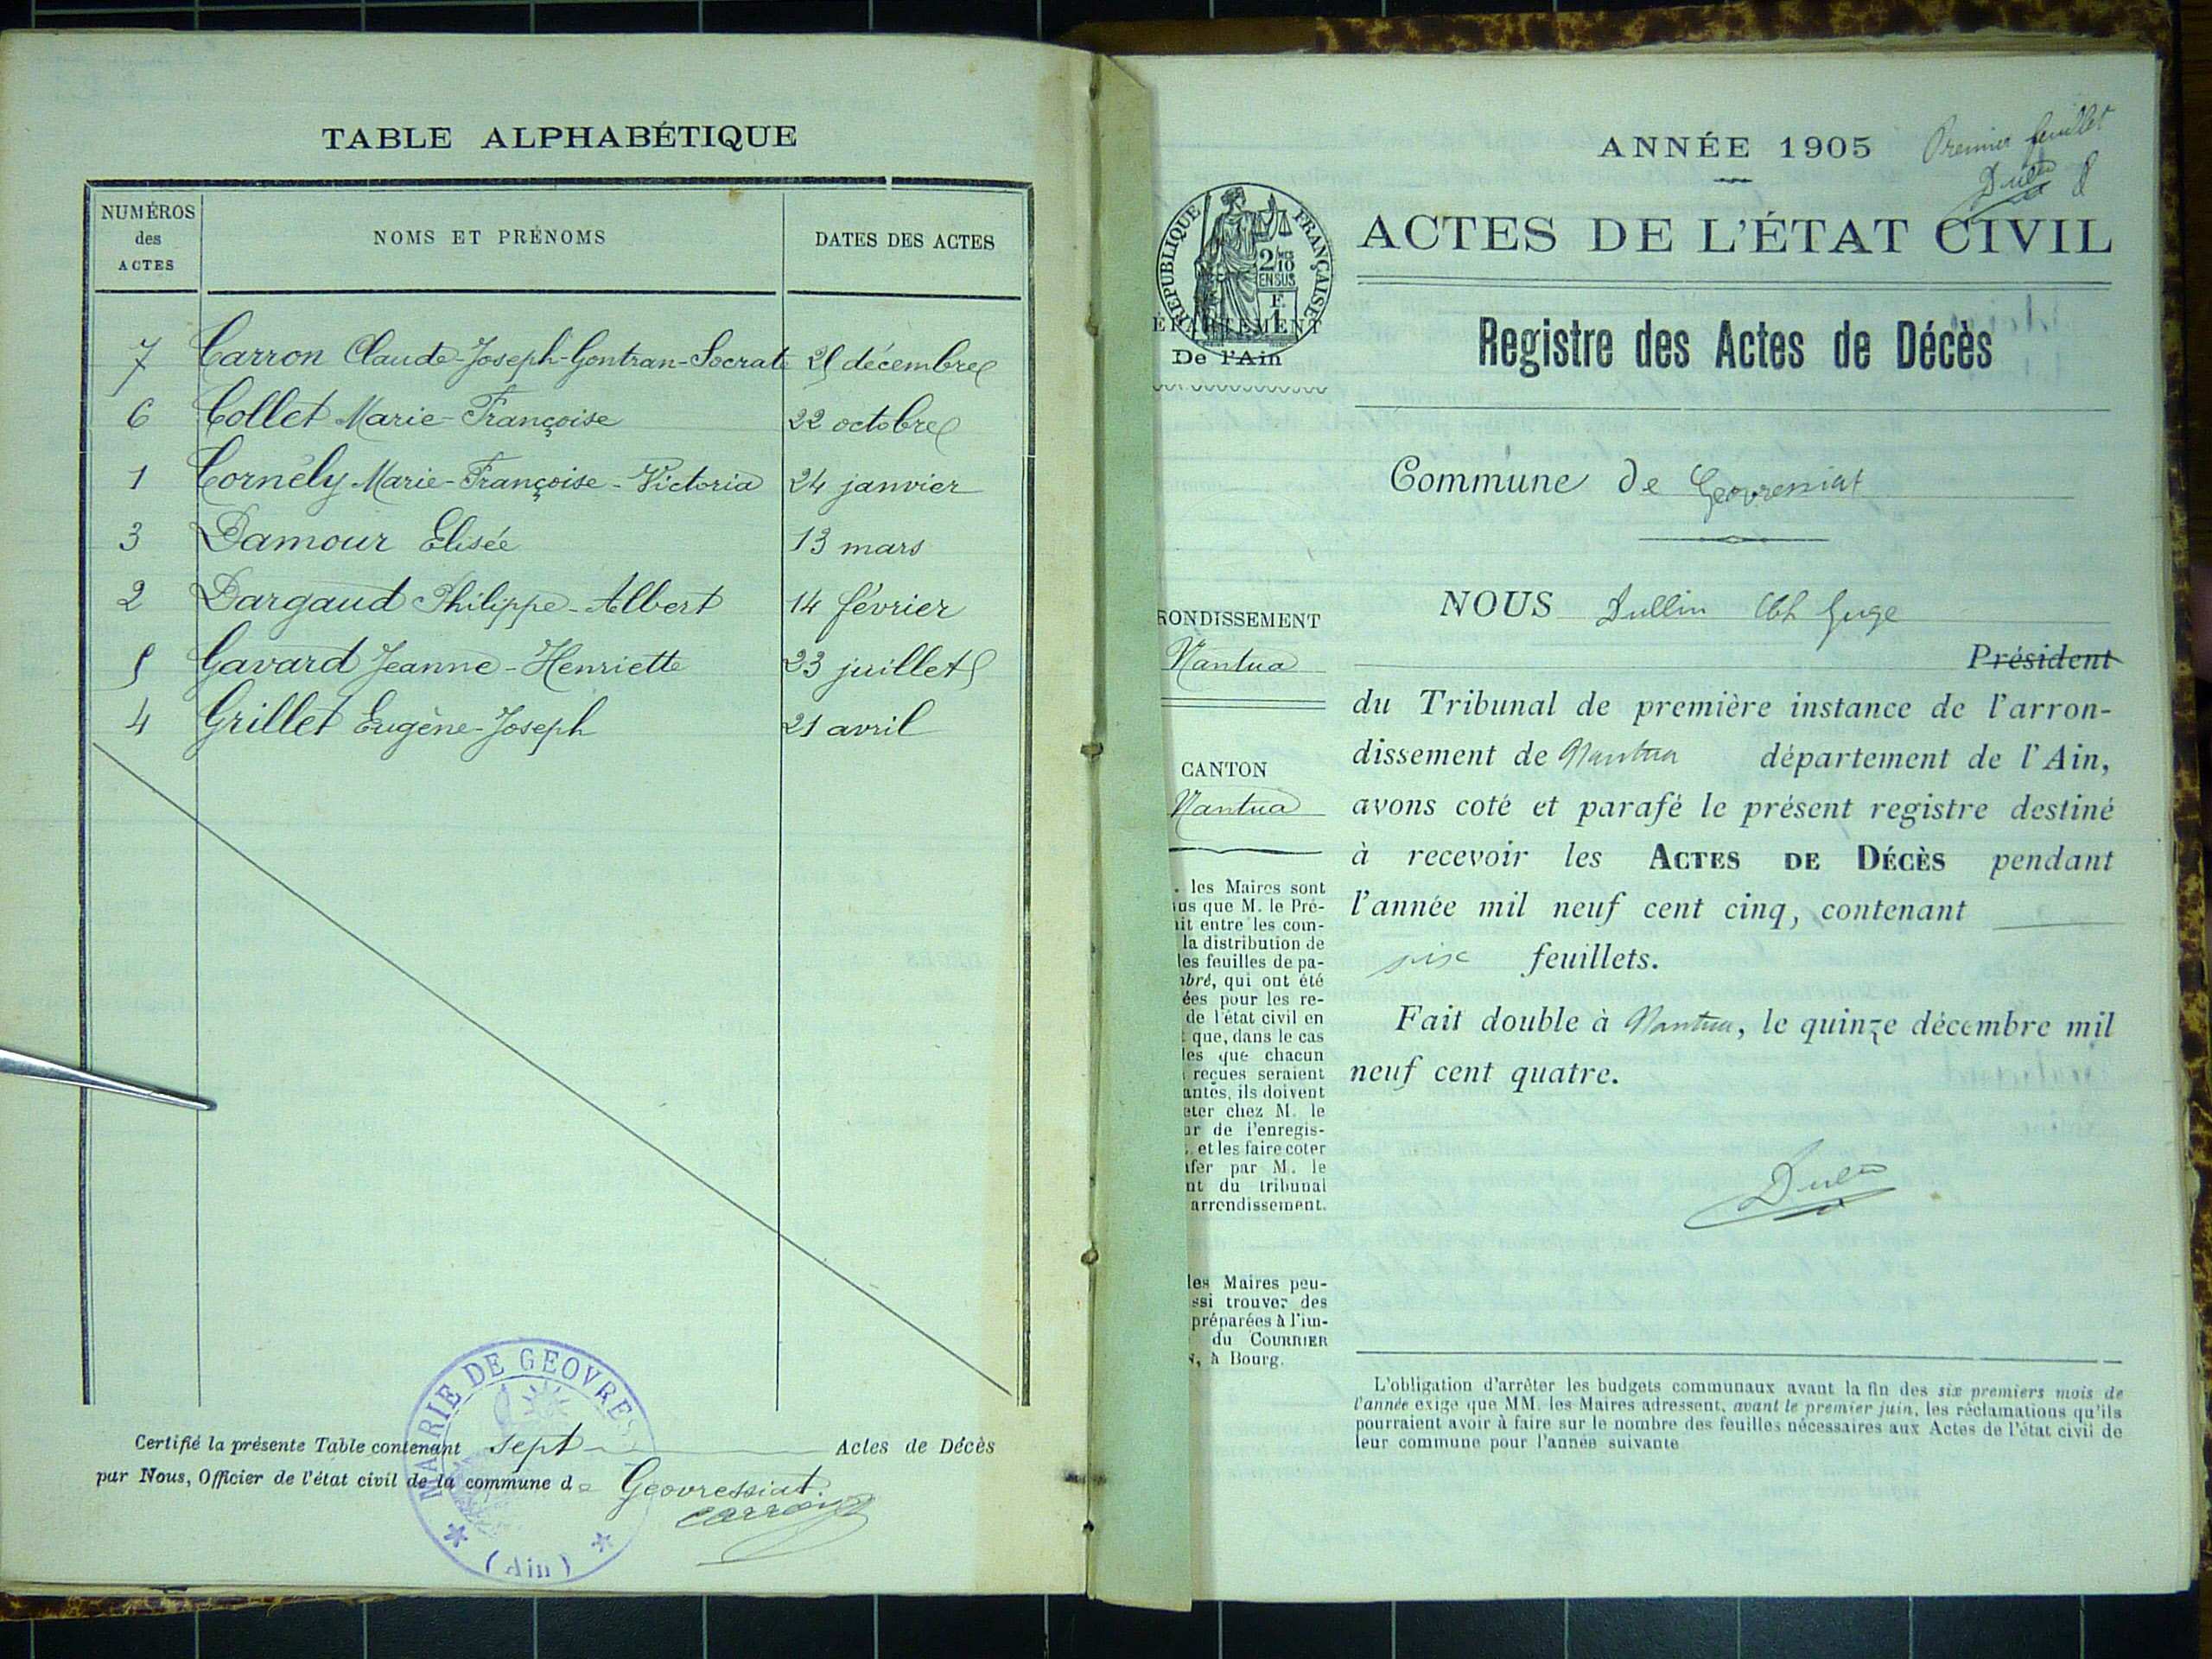 TABLE ALPHABÉTIQUE
NUMÉROS
des
ACTES
NOMS ET PRÉNOMS
DATES DES ACTES
7 Carron Claude-Joseph-Gontran-Socrate décembre
6 Collet Marie-Françoise 22 octobre
1 Cornély Marie-Françoise-Victoria 24 janvier
3 Damour Elisée 13 mars
2 Dargaud Philippe-Albert 14 février
5 Gavard Jeanne-Henriette 23 juillet
4 Grillet Eugène-Joseph 21 avril
Certifié la présente Table contenant sept Actes de Décès
par Nous, Officier de l'état civil de la commune de Geovressiat.
Carron
MAIRIE DE GEOVRES
(Ain)
Premier feuillet
ANNÉE 1905
ACTES DE L'ÉTAT CIVIL
RÉPUBLIQUE FRANÇAISE
2/10
EN SUS
F.
1
ÉPARTEMENT
De l'Ain
Registre des Actes de Décès
Commune de Geovressiat
RONDISSEMENT
Nantua
CANTON
Nantua
. les Maires sont
us que M. le Pré-
ait entre les com-
la distribution de
les feuilles de pa-
bré, qui ont été
ées pour les re-
de l'état civil en
que, dans le cas
les que chacun
reçues seraient
antes, ils doivent
eter chez M. le
ur de l'enregis-
, et les faire coter
afer par M. le
nt du tribunal
arrondissement.
les Maires peu-
ssi trouver des
préparées à l'im-
du COURRIER
, à Bourg.
NOUS Dullin Juge
Président
du Tribunal de première instance de l'arron-
dissement de Nantua département de l'Ain,
avons coté et parafé le présent registre destiné
à recevoir les ACTES DE DÉCÈS pendant
l'année mil neuf cent cinq, contenant
six feuillets.
Fait double à Nantua, le quinze décembre mil
neuf cent quatre.
L'obligation d'arrêter les budgets communaux avant la fin des six premiers mois de
l'année exige que MM. les Maires adressent, avant le premier juin, les réclamations qu'ils
pourraient avoir à faire sur le nombre des feuilles nécessaires aux Actes de l'état civil de
leur commune pour l'année suivante